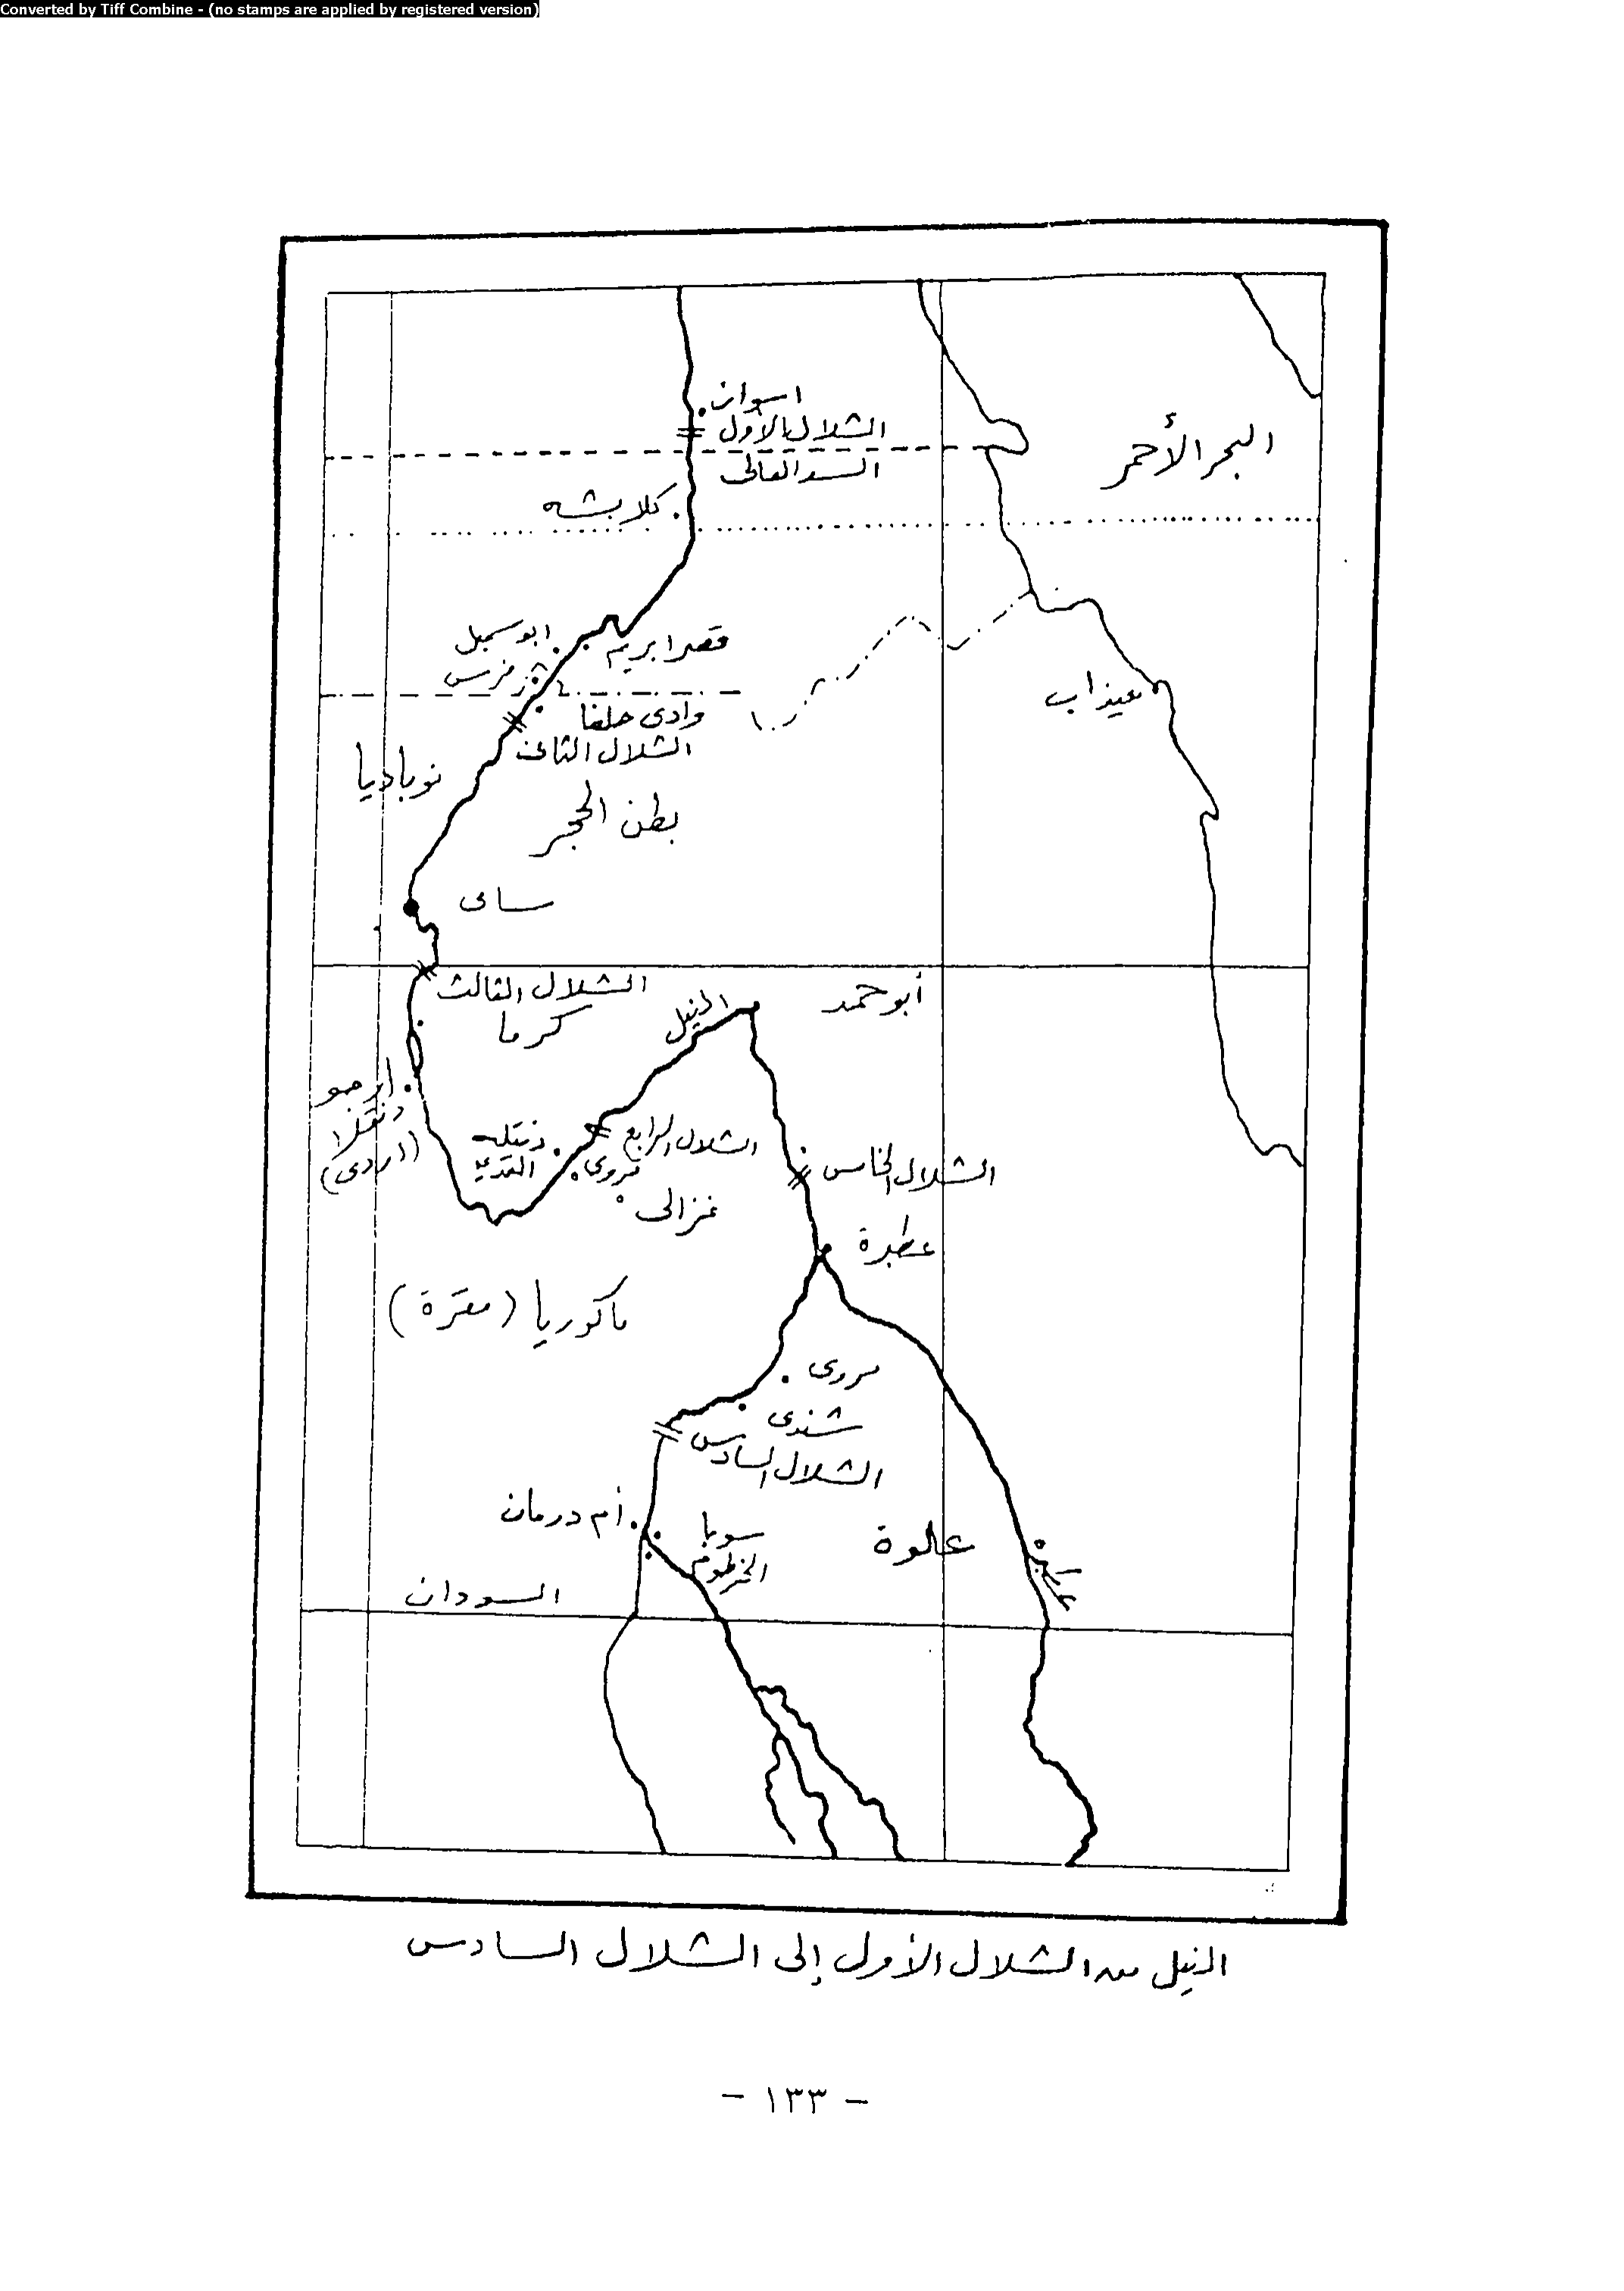 Converted by Tiff Combine - (no stamps are applied by registered version)
اسوان
الشلال الأول
البحر الأحمر
السد العالى
كلابشه
ابو سمبل
قصر ابريم
فرس
عيذاب
وادى حلفا
الشلال الثانى
نوباديا
بطن الحجر
ساى
الشلال الثالث
أبو حمد
النيل
كرما
ارجو
دنقلا
(اردى)
دنقله
الشلال الرابع
الشلال الخامس
مروى
غزالى
عطبرة
ماكوريا (مقرة)
مروى
شندى
الشلال السادس
أم درمان
سوبا
علوة
الخرطوم
السودان
النيل من الشلال الأول إلى الشلال السادس
- ١٣٣ -